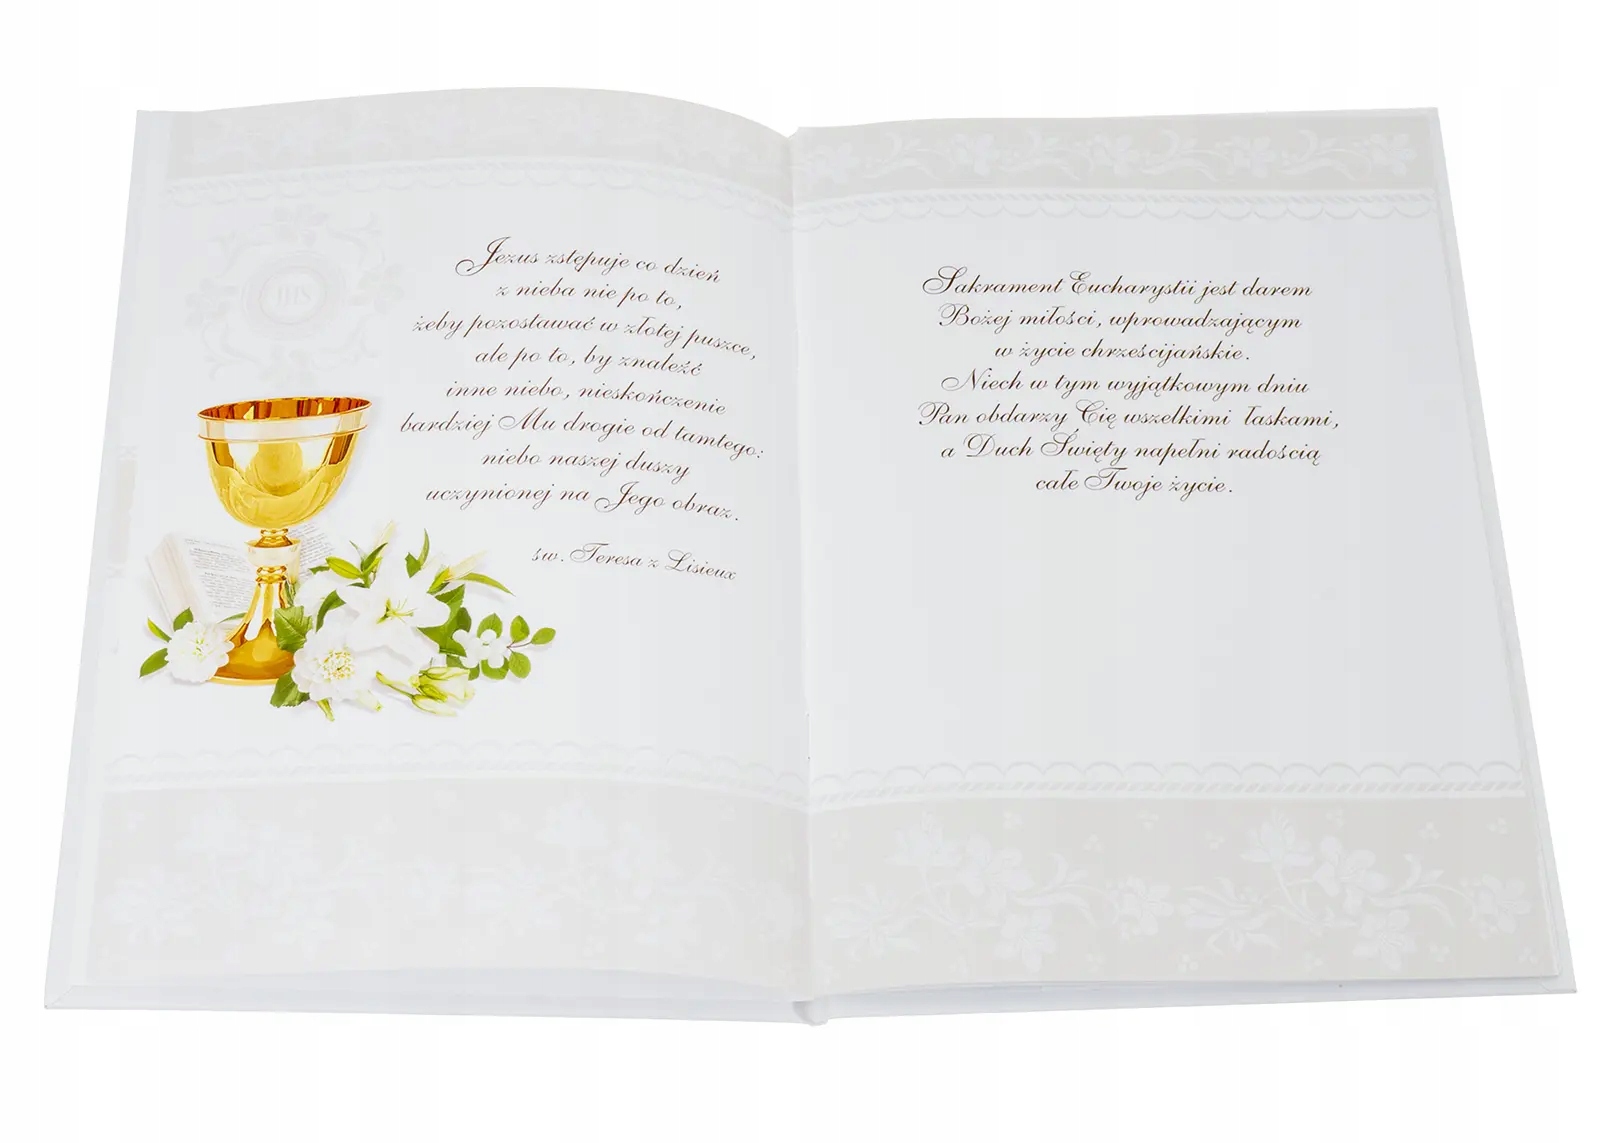 IHS
Jezus zstępuje co dzień
z nieba nie po to,
żeby pozostawać w złotej puszce,
ale po to, by znaleźć
inne niebo, nieskończenie
bardziej Mu drogie od tamtego:
niebo naszej duszy
uczynionej na Jego obraz.
św. Teresa z Lisieux
Sakrament Eucharystii jest darem
Bożej miłości, wprowadzającym
w życie chrześcijańskie.
Niech w tym wyjątkowym dniu
Pan obdarzy Cię wszelkimi łaskami,
a Duch Święty napełni radością
całe Twoje życie.